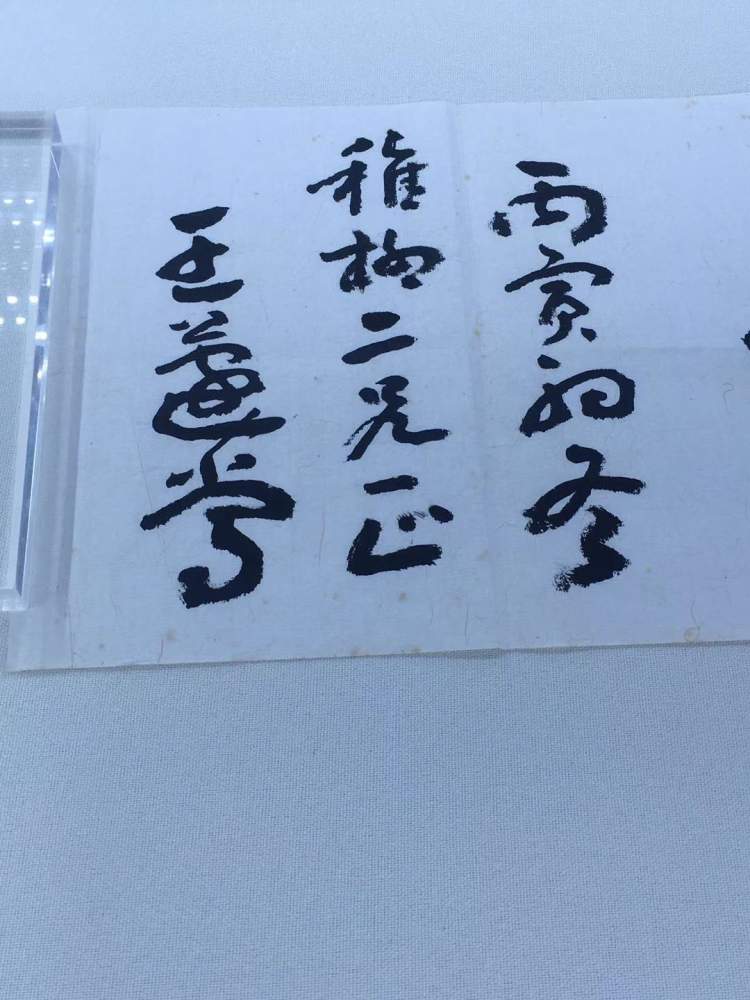 丙寅初冬
稚柳二兄正
王蘧常